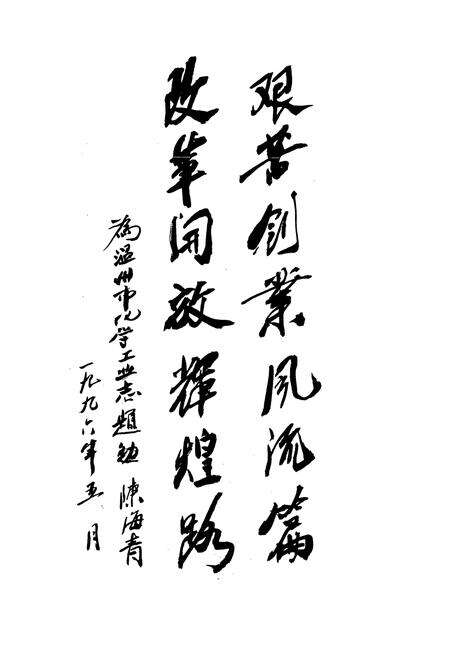 艰苦創業风流篇
改革開放輝煌路
為温州市化学工业志題勉 陳海青
一九九六年五月